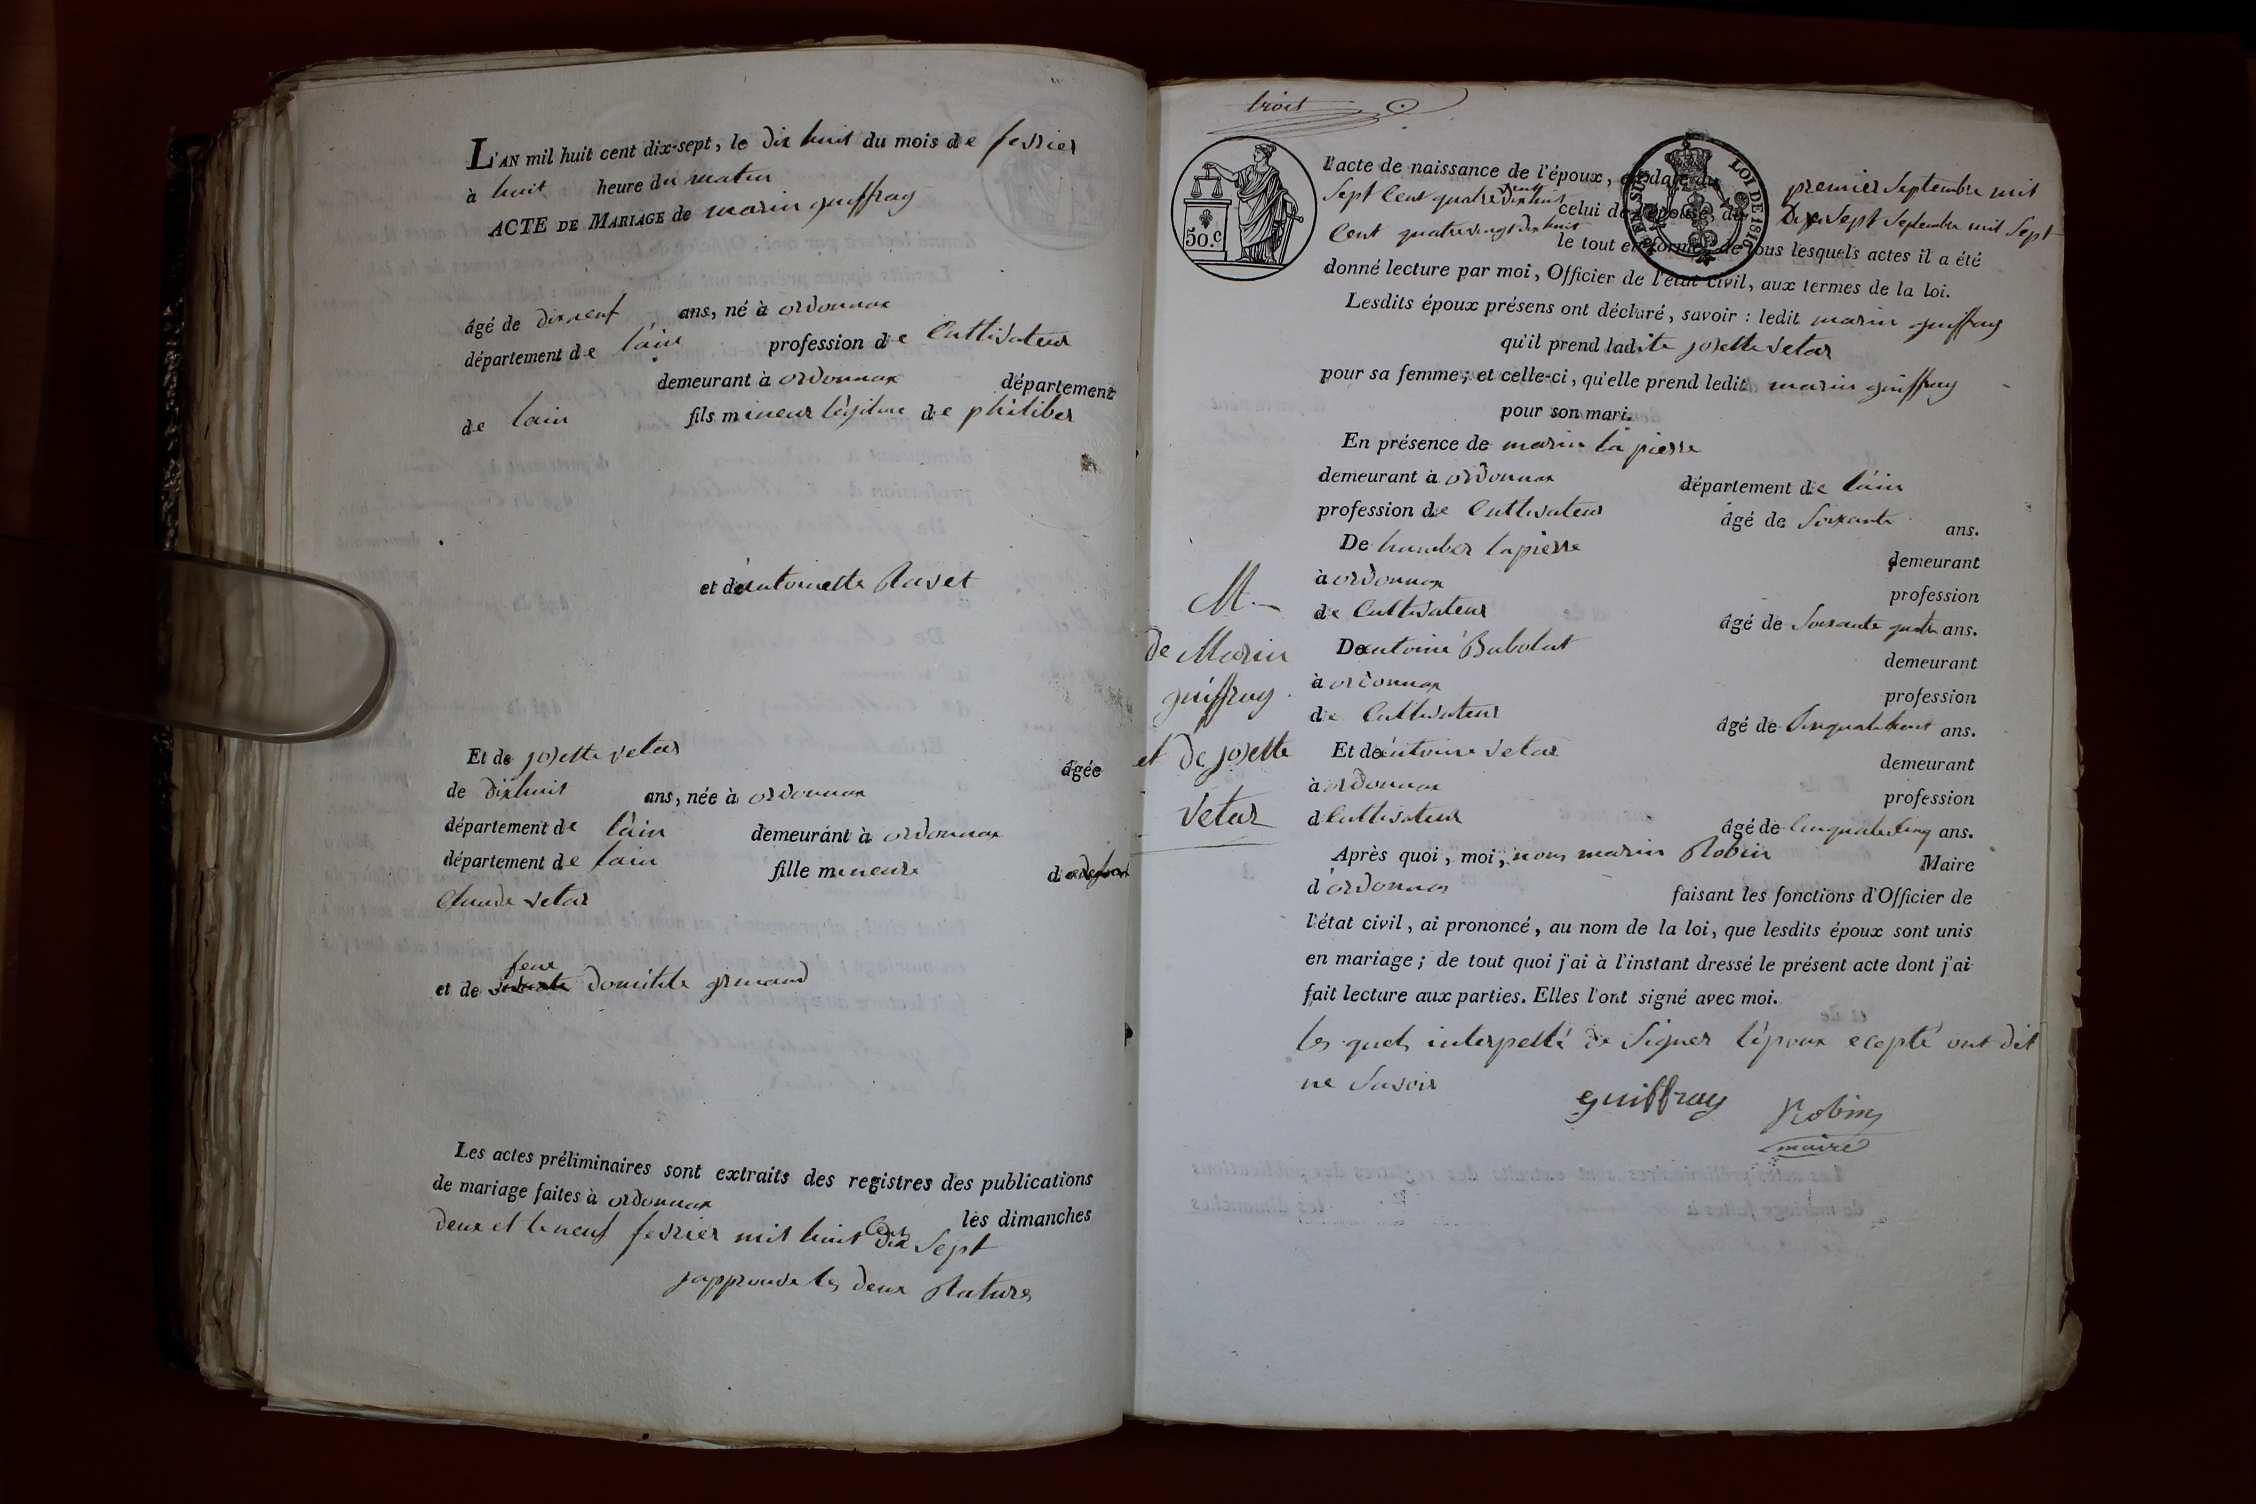 L'AN mil huit cent dix-sept, le dix huit du mois de fevrier
à huit heure du matin
ACTE DE MARIAGE de marin guiffray
âgé de dixneuf ans, né à ordonnax
département de l'ain profession de Cultivateur
demeurant à ordonnax département
de lain fils mineur légitime de philiber
et de antoinette Ravet
Et de josette vetar âgée
de dixhuit ans, née à ordonnax
département de l'ain demeurant à ordonnax
département de lain fille mineure de
Claude vetar
feux
et de domitile grmand
Les actes préliminaires sont extraits des registres des publications
de mariage faites à ordonnax les dimanches
deux et le neuf fevrier mil huit Cent dix Sept
japprouve les deux Ratures
trois
50.C
LOI DE 1816
l'acte de naissance de l'époux, en date du premier Septembre mil
Sept Cent quatre vingt dixhuit
celui de l'épouse, du Dix Sept Septembre mil Sept
Cent quatrevingt dix huit
le tout en forme, de tous lesquels actes il a été
donné lecture par moi, Officier de l'état civil, aux termes de la loi.
Lesdits époux présens ont déclaré, savoir : ledit marin guiffray
qu'il prend ladite josette vetar
pour sa femme; et celle-ci, qu'elle prend ledit marin guiffray
pour son mari.
En présence de marin la pierre
demeurant à ordonnax département de l'ain
profession de Cultivateur âgé de Soixante ans.
De humber lapierre demeurant
à ordonnax profession
de Cultivateur âgé de Soixante quatre ans.
De antoine Babolat demeurant
à ordonnax profession
de Cultivateur âgé de Cinquantehuit ans.
Et de antoine vetar demeurant
à ordonnax profession
d Cultivateur âgé de Cinquantecinq ans.
Après quoi, moi, nous marin Robin Maire
d'ordonnax faisant les fonctions d'Officier de
l'état civil, ai prononcé, au nom de la loi, que lesdits époux sont unis
en mariage; de tout quoi j'ai à l'instant dressé le présent acte dont j'ai
fait lecture aux parties. Elles l'ont signé avec moi.
les quels interpellé de Signer l'époux ecepté ont dit
ne Savoir
guiffray Robin
maire
M.
de Marin
guiffray
et de josette
vetar